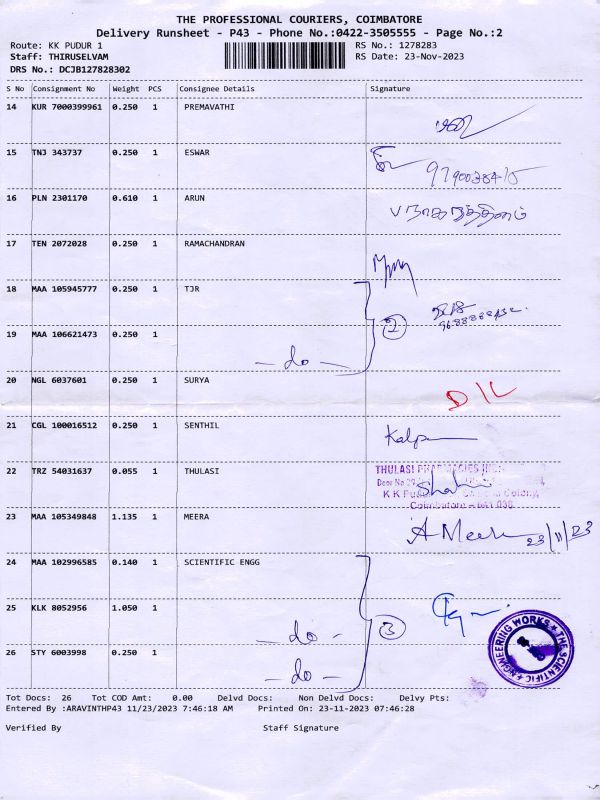 THE PROFESSIONAL COURIERS, COIMBATORE
Delivery Runsheet - P43 - Phone No.:0422-3505555 - Page No.:2
Route: KK PUDUR 1 RS No.: 1278283
Staff: THIRUSELVAM RS Date: 23-Nov-2023
DRS No.: DCJB127828302
S No Consignment No Weight PCS Consignee Details Signature
14 KUR 7000399961 0.250 1 PREMAVATHI
15 TNJ 343737 0.250 1 ESWAR
16 PLN 2301170 0.610 1 ARUN
17 TEN 2072028 0.250 1 RAMACHANDRAN
18 MAA 105945777 0.250 1 TJR
2
19 MAA 106621473 0.250 1
- do -
20 NGL 6037601 0.250 1 SURYA D/L
21 CGL 100016512 0.250 1 SENTHIL
22 TRZ 54031637 0.055 1 THULASI THULASI PHARMACIES
Door No
K K Colony,
Coimbatore - 641 038.
23 MAA 105349848 1.135 1 MEERA A Meera 23/11/23
24 MAA 102996585 0.140 1 SCIENTIFIC ENGG
25 KLK 8052956 1.050 1
- do - 3
THE SCIENTIFIC ENGINEERING WORKS
26 STY 6003998 0.250 1
- do -
Tot Docs: 26 Tot COD Amt: 0.00 Delvd Docs: Non Delvd Docs: Delvy Pts:
Entered By :ARAVINTHP43 11/23/2023 7:46:18 AM Printed On: 23-11-2023 07:46:28
Verified By Staff Signature